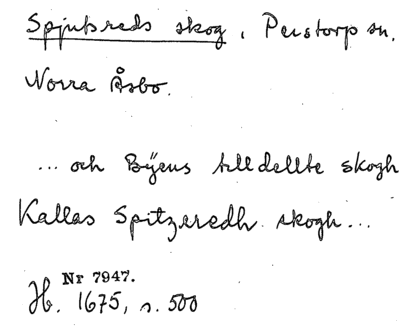 Spjutsreds skog, Perstorp sn,
Norra Åsbo.
... och Bÿens tilldellte skogh
Kallas Spitzeredh skogh...
Nr 7947.
Jb. 1675, s. 500